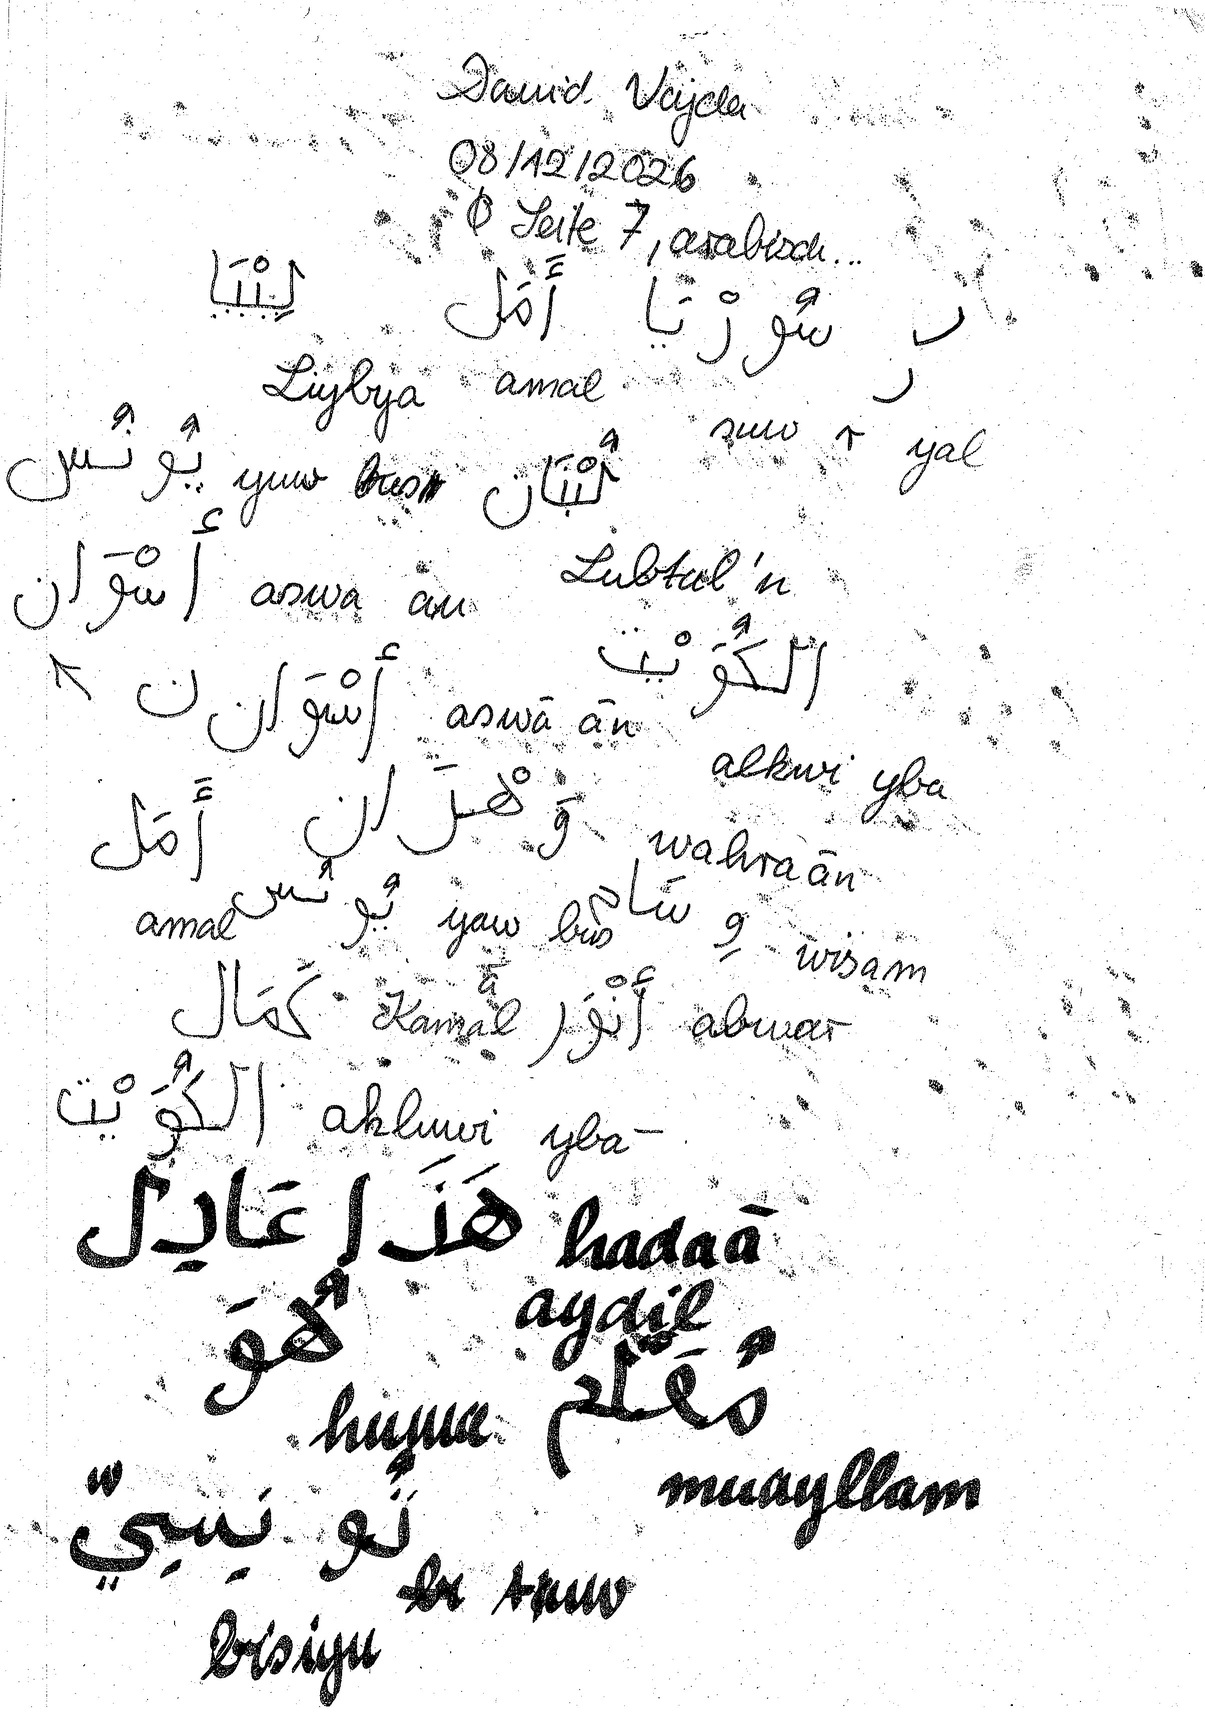 David Vajda
08/12/2026
Seite 7, arabisch...
لِيْبْيَا أَمَل سُورْيَا ر
Liybya amal ر
suw r yal
يُونُس yuw bus لُبْنَان
أَسْوَان aswa an Lubtul'n
الكُوَيْت
ن أَسْوَان aswā ān
alkwi yba
أَمَل وَهْرَان wahraān
amal يُونُس yaw bus وِسَام wisam
كَمَال Kamal أَنْوَر abwar
الكُوَيْت aklwi yba-
هَذَا عَادِل hadaā
aydil
هُوَ
huwa مُعَلِّم
muayllam
تُونِسِيّ
br tnuw
bisiyu